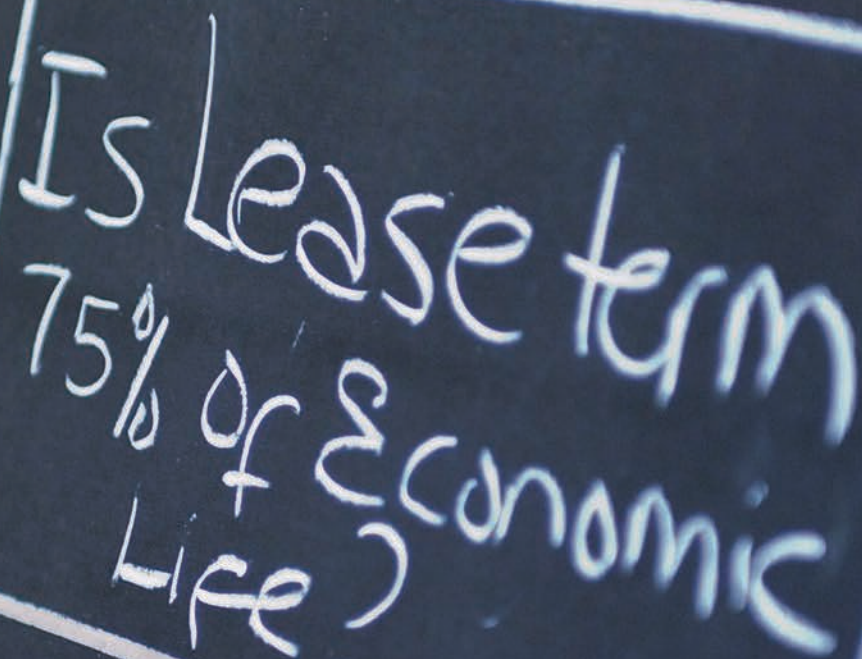 Is Lease term
75% of Economic
Life?